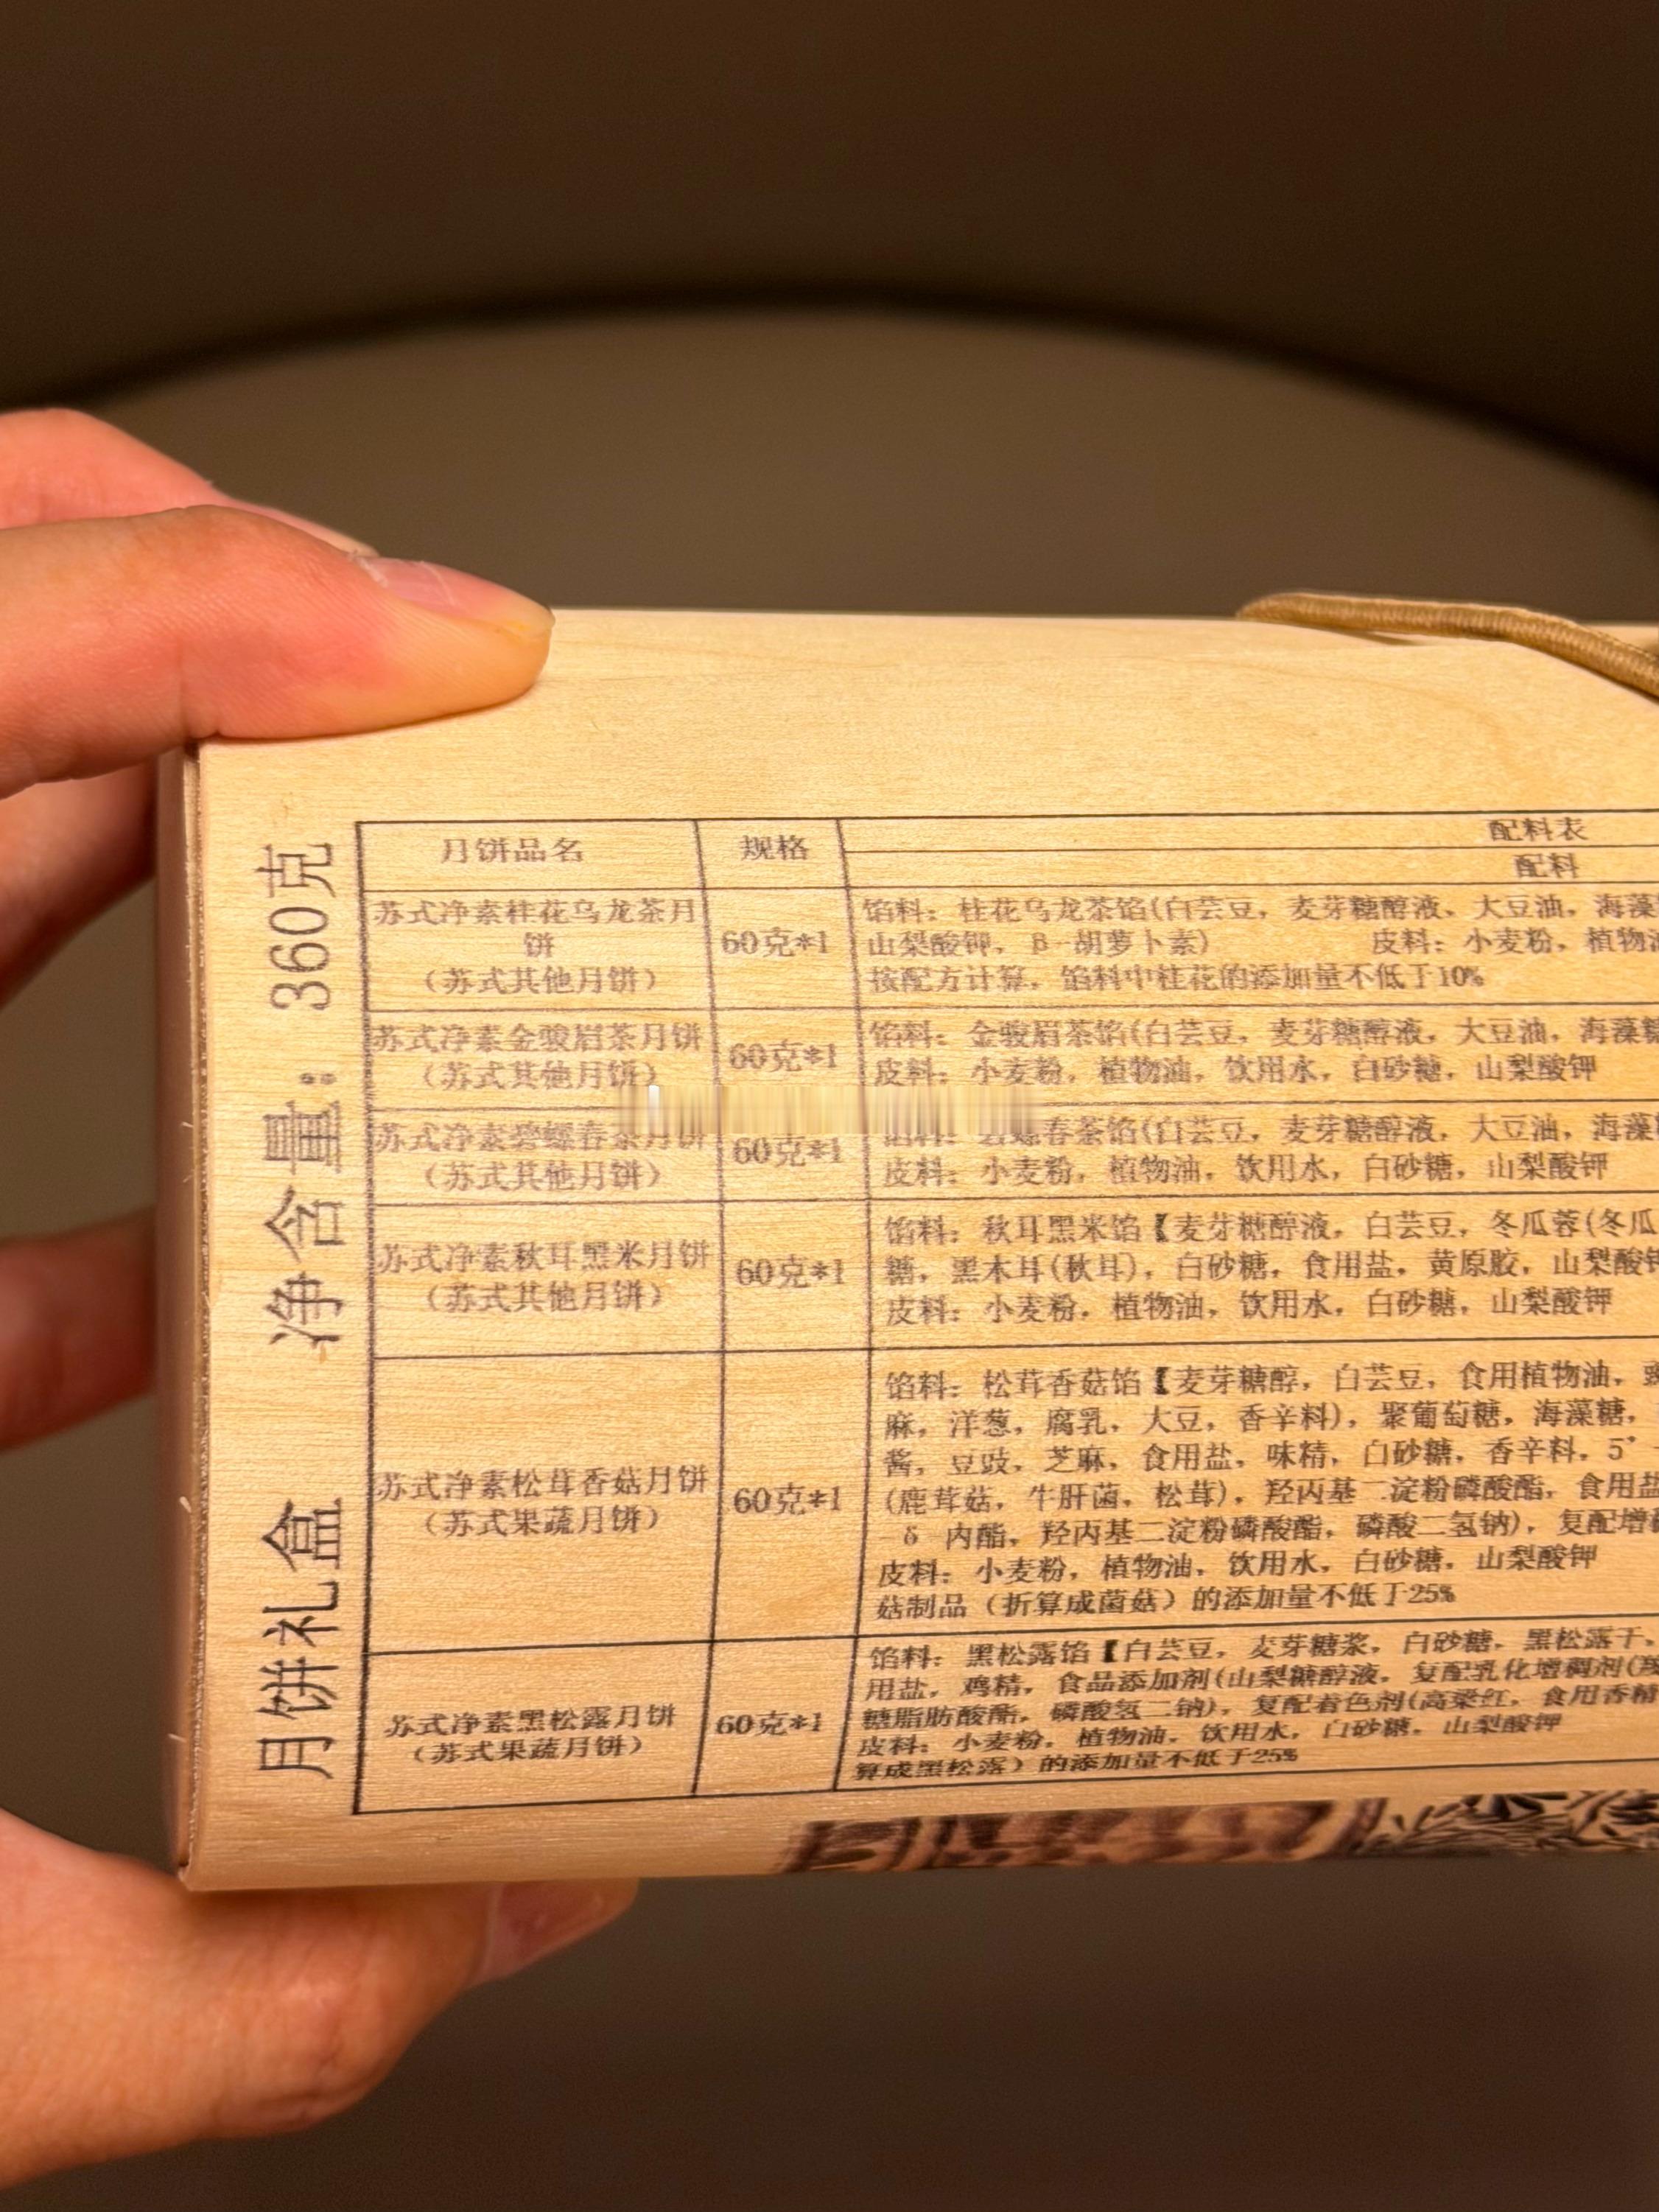 月饼礼盒 净含量：360克
月饼品名 规格 配料表
配料
苏式净素桂花乌龙茶月
饼
（苏式其他月饼）
60克*1
馅料：桂花乌龙茶馅(白芸豆，麦芽糖醇液，大豆油，海藻
山梨酸钾，β-胡萝卜素) 皮料：小麦粉，植物
按配方计算，馅料中桂花的添加量不低于10%
苏式净素金骏眉茶月饼
（苏式其他月饼）
60克*1
馅料：金骏眉茶馅(白芸豆，麦芽糖醇液，大豆油，海藻糖
皮料：小麦粉，植物油，饮用水，白砂糖，山梨酸钾
苏式净素碧螺春茶月饼
（苏式其他月饼）
60克*1
春茶馅(白芸豆，麦芽糖醇液，大豆油，海藻
皮料：小麦粉，植物油，饮用水，白砂糖，山梨酸钾
苏式净素秋耳黑米月饼
（苏式其他月饼）
60克*1
馅料：秋耳黑米馅【麦芽糖醇液，白芸豆，冬瓜蓉(冬瓜
糖，黑木耳(秋耳)，白砂糖，食用盐，黄原胶，山梨酸钾
皮料：小麦粉，植物油，饮用水，白砂糖，山梨酸钾
苏式净素松茸香菇月饼
（苏式果蔬月饼）
60克*1
馅料：松茸香菇馅【麦芽糖醇，白芸豆，食用植物油，
麻，洋葱，腐乳，大豆，香辛料)，聚葡萄糖，海藻糖，
酱，豆豉，芝麻，食用盐，味精，白砂糖，香辛料，5'-
(鹿茸菇，牛肝菌，松茸)，羟丙基二淀粉磷酸酯，食用盐
-δ-内酯，羟丙基二淀粉磷酸酯，磷酸二氢钠)，复配增
皮料：小麦粉，植物油，饮用水，白砂糖，山梨酸钾
菇制品（折算成菌菇）的添加量不低于25%
苏式净素黑松露月饼
（苏式果蔬月饼）
60克*1
馅料：黑松露馅【白芸豆，麦芽糖浆，白砂糖，黑松露干，
用盐，鸡精，食品添加剂(山梨糖醇液，复配乳化增稠剂(
糖脂肪酸酯，磷酸氢二钠)，复配着色剂(高粱红，食用香精
皮料：小麦粉，植物油，饮用水，白砂糖，山梨酸钾
算成黑松露）的添加量不低于25%